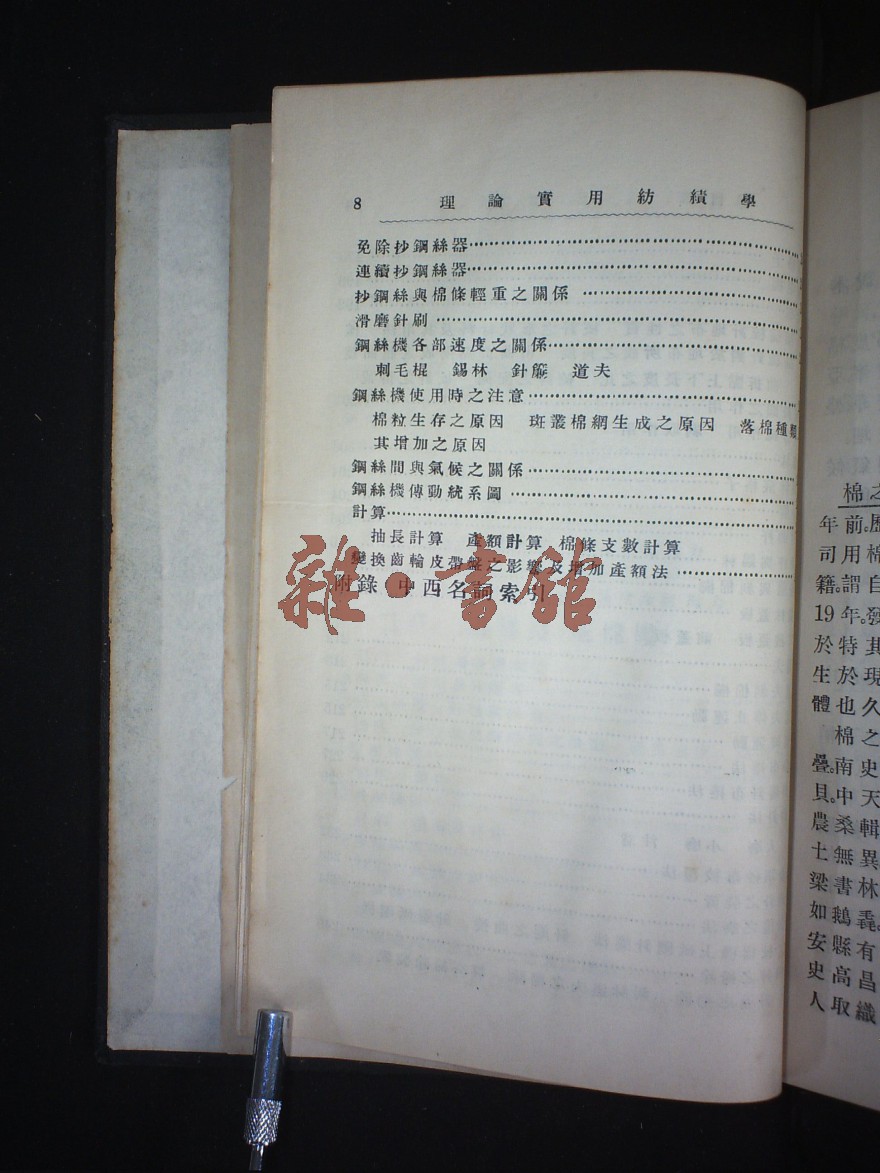 8 理論實用紡績學
免除抄鋼絲器
連續抄鋼絲器
抄鋼絲與棉條輕重之關係
滑磨針刷
鋼絲機各部速度之關係
刺毛棍 錫林 針簾 道夫
鋼絲機使用時之注意
棉粒生存之原因 斑叢棉網生成之原因 落棉種類
其增加之原因
鋼絲間與氣候之關係
鋼絲機傳動統系圖
計算
抽長計算 產額計算 棉條支數計算
變換齒輪皮帶盤之影響及增加產額法
附錄 中西名詞索引
雜·書館
棉之
年前。歷
司用棉
籍。謂自
19年。發
於特其
生於現
體也久
棉之
疊。南史
貝。中天
農桑輯
士無異
梁書林
如鵝毳。
安縣有
史高昌
人取織